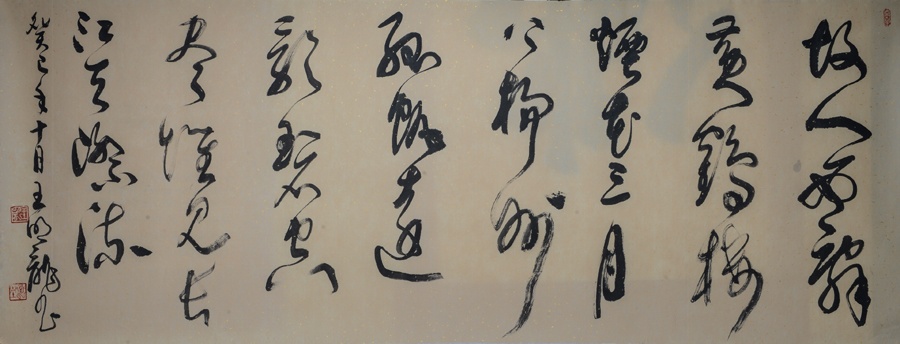 故人西辭
黃鶴樓
煙花三月
下揚州
孤帆遠
影碧空
盡惟見長
江天際流
癸巳年十月王明龍書